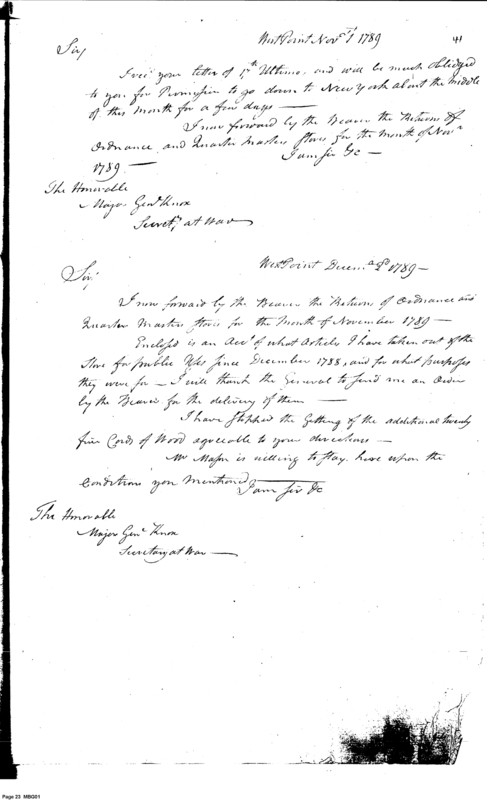 West Point Novr. 1st 1789
41
Sir,
I recd. your letter of 17th Ultimo, and will be much obliged
to you for Permission to go down to New York about the middle
of this Month for a few days —
I now forward by the Bearer the Returns of
Ordnance and Quarter Masters Stores for the Month of Novr.
1789 —
I am Sir &c —
The Honorable
Major Genl. Knox
Secrety. at War
West Point Decem. 2d 1789 —
Sir,
I now forward by the Bearer the Returns of Ordnance and
Quarter Masters Stores for the Month of November 1789 —
Enclosed is an Acct. of what Articles I have taken out of the
Store for public Use since December 1788, and for what purposes
they were for — I will thank the General to send me an Order
by the Bearer for the delivery of them —
I have stopped the Getting of the additional twenty
five Cords of Wood agreeable to your directions —
Mr Mason is willing to stay here upon the
Conditions you mentioned
I am Sir &c
The Honorable
Major Genl. Knox
Secretary at War —
Page 23 MBG01